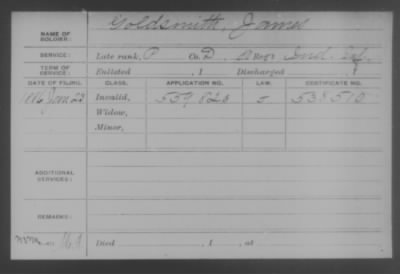 NAME OF SOLDIER: Goldsmith, James
SERVICE: Late rank, P Co. D, Reg't Ind. Inf.
TERM OF SERVICE: Enlisted , 1 Discharged , 1
DATE OF FILING. CLASS. APPLICATION NO. LAW. CERTIFICATE NO.
1886 Jan 23 Invalid, 559 820 538 510
Widow,
Minor,
ADDITIONAL SERVICES:
REMARKS:
Died , 1 , at